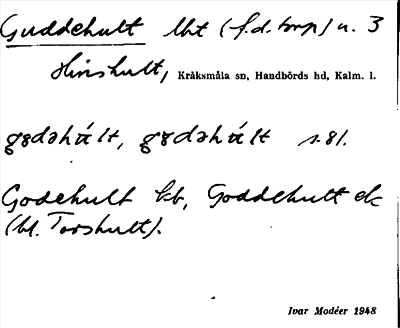 Guddehult lht (f.d. torp) u. 3
Hinshult, Kråksmåla sn, Handbörds hd, Kalm. l.
gɞdəhúlt, gɞdəhúlt s. 81.
Godehult kb, Goddehult ek
(bl. Torshult).
Ivar Modéer 1948